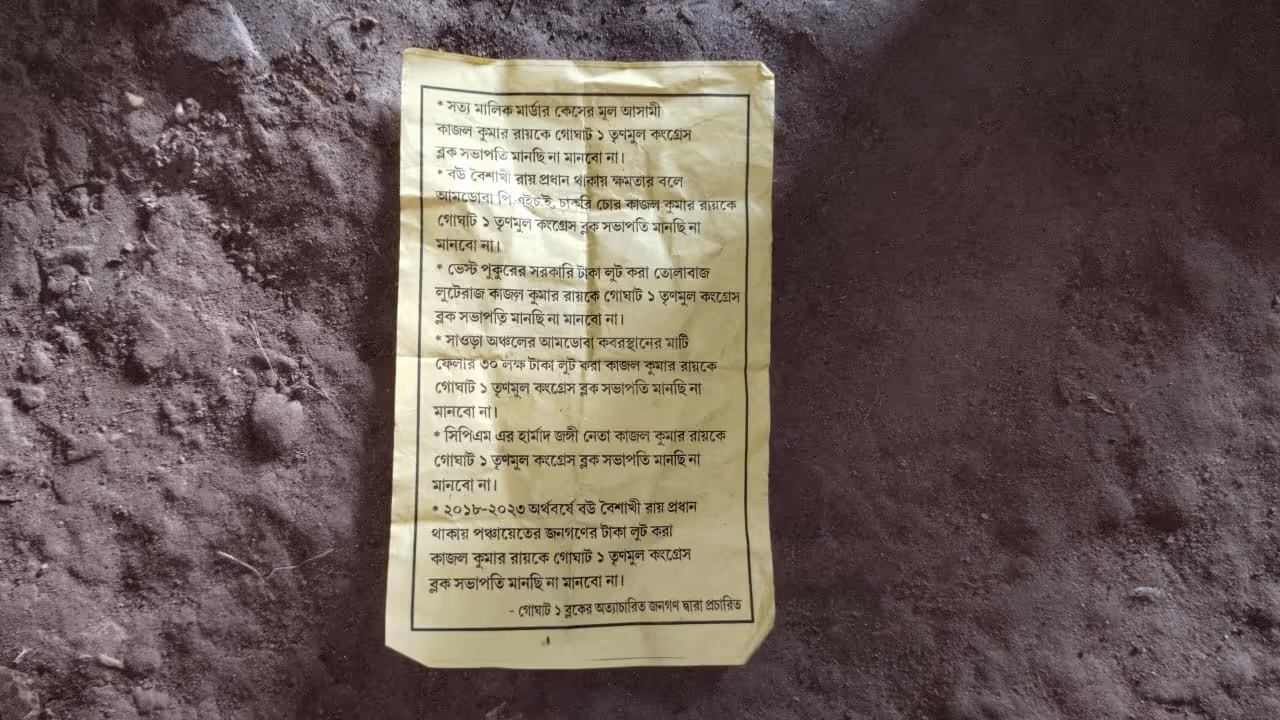 * সত্য মালিক মার্ডার কেসের মূল আসামী
কাজল কুমার রায়কে গোঘাট ১ তৃণমুল কংগ্রেস
ব্লক সভাপতি মানছি না মানবো না।
* বউ বৈশাখী রায় প্রধান থাকায় ক্ষমতার বলে
আমডোবা পি.এইচ.ই. চাকরি চোর কাজল কুমার রায়কে
গোঘাট ১ তৃণমুল কংগ্রেস ব্লক সভাপতি মানছি না
মানবো না।
* ভেস্ট পুকুরের সরকারি টাকা লুট করা তোলাবাজ
লুটেরাজ কাজল কুমার রায়কে গোঘাট ১ তৃণমুল কংগ্রেস
ব্লক সভাপতি মানছি না মানবো না।
* সাওড়া অঞ্চলের আমডোবা কবরস্থানের মাটি
ফেলার ৩০ লক্ষ টাকা লুট করা কাজল কুমার রায়কে
গোঘাট ১ তৃণমুল কংগ্রেস ব্লক সভাপতি মানছি না
মানবো না।
* সিপিএম এর হার্মাদ জঙ্গী নেতা কাজল কুমার রায়কে
গোঘাট ১ তৃণমুল কংগ্রেস ব্লক সভাপতি মানছি না
মানবো না।
* ২০১৮-২০২৩ অর্থবর্ষে বউ বৈশাখী রায় প্রধান
থাকায় পঞ্চায়েতের জনগণের টাকা লুট করা
কাজল কুমার রায়কে গোঘাট ১ তৃণমুল কংগ্রেস
ব্লক সভাপতি মানছি না মানবো না।
- গোঘাট ১ ব্লকের অত্যাচারিত জনগণ দ্বারা প্রচারিত